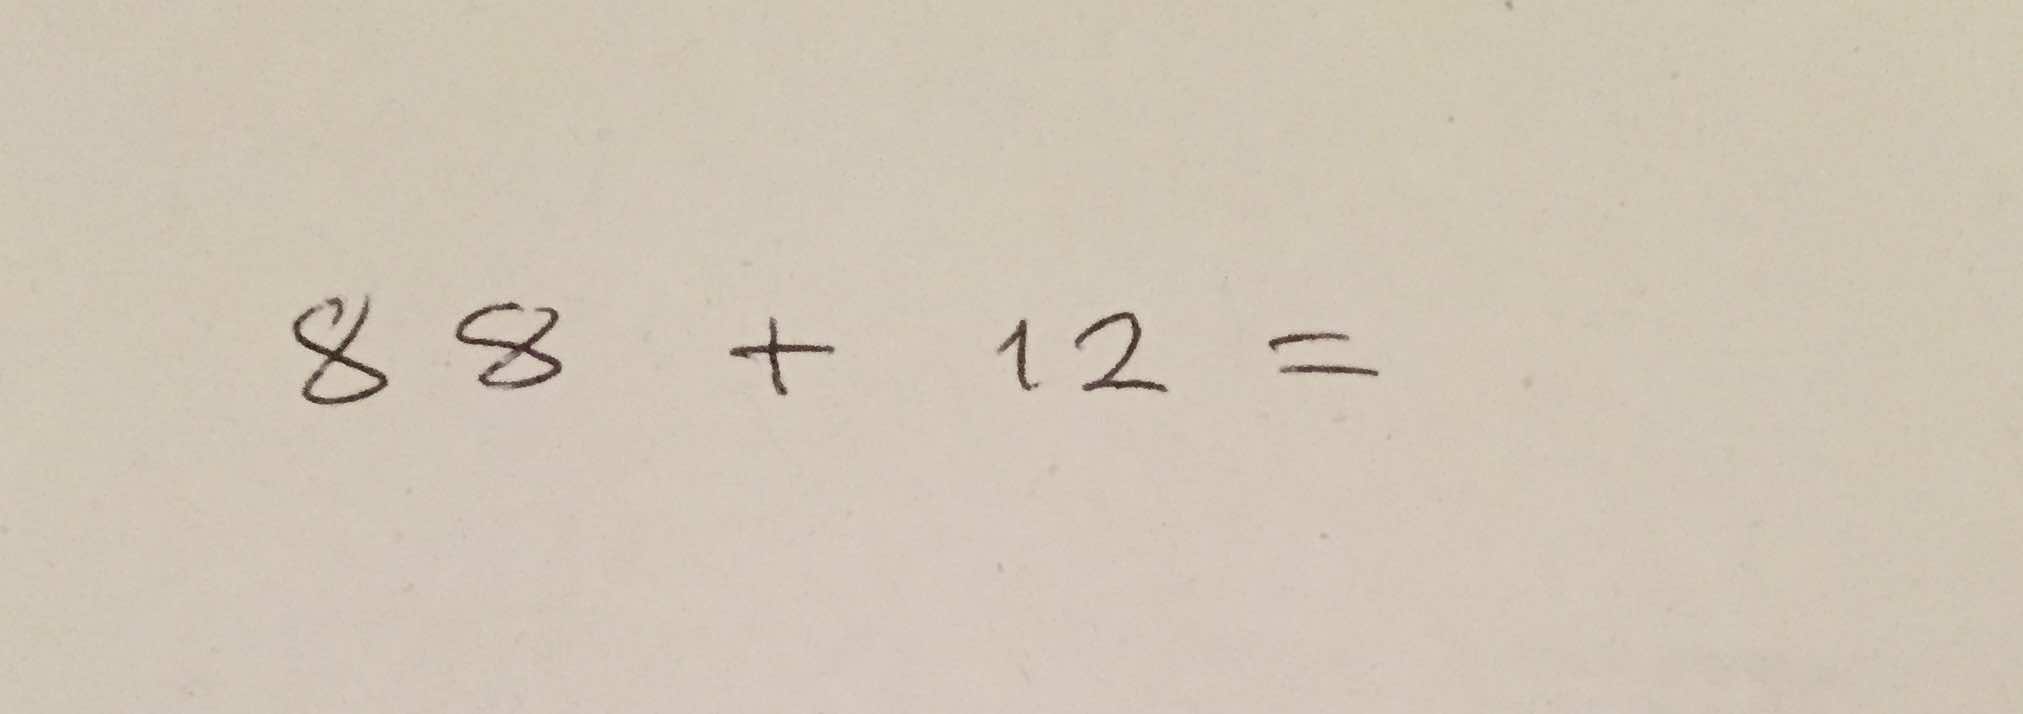 88 + 12 =